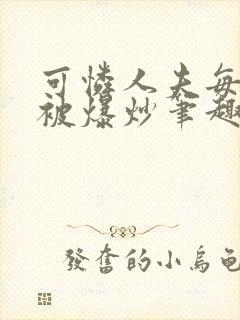 可憐人夫每
被爆炒筆趣
發奮的小烏龜